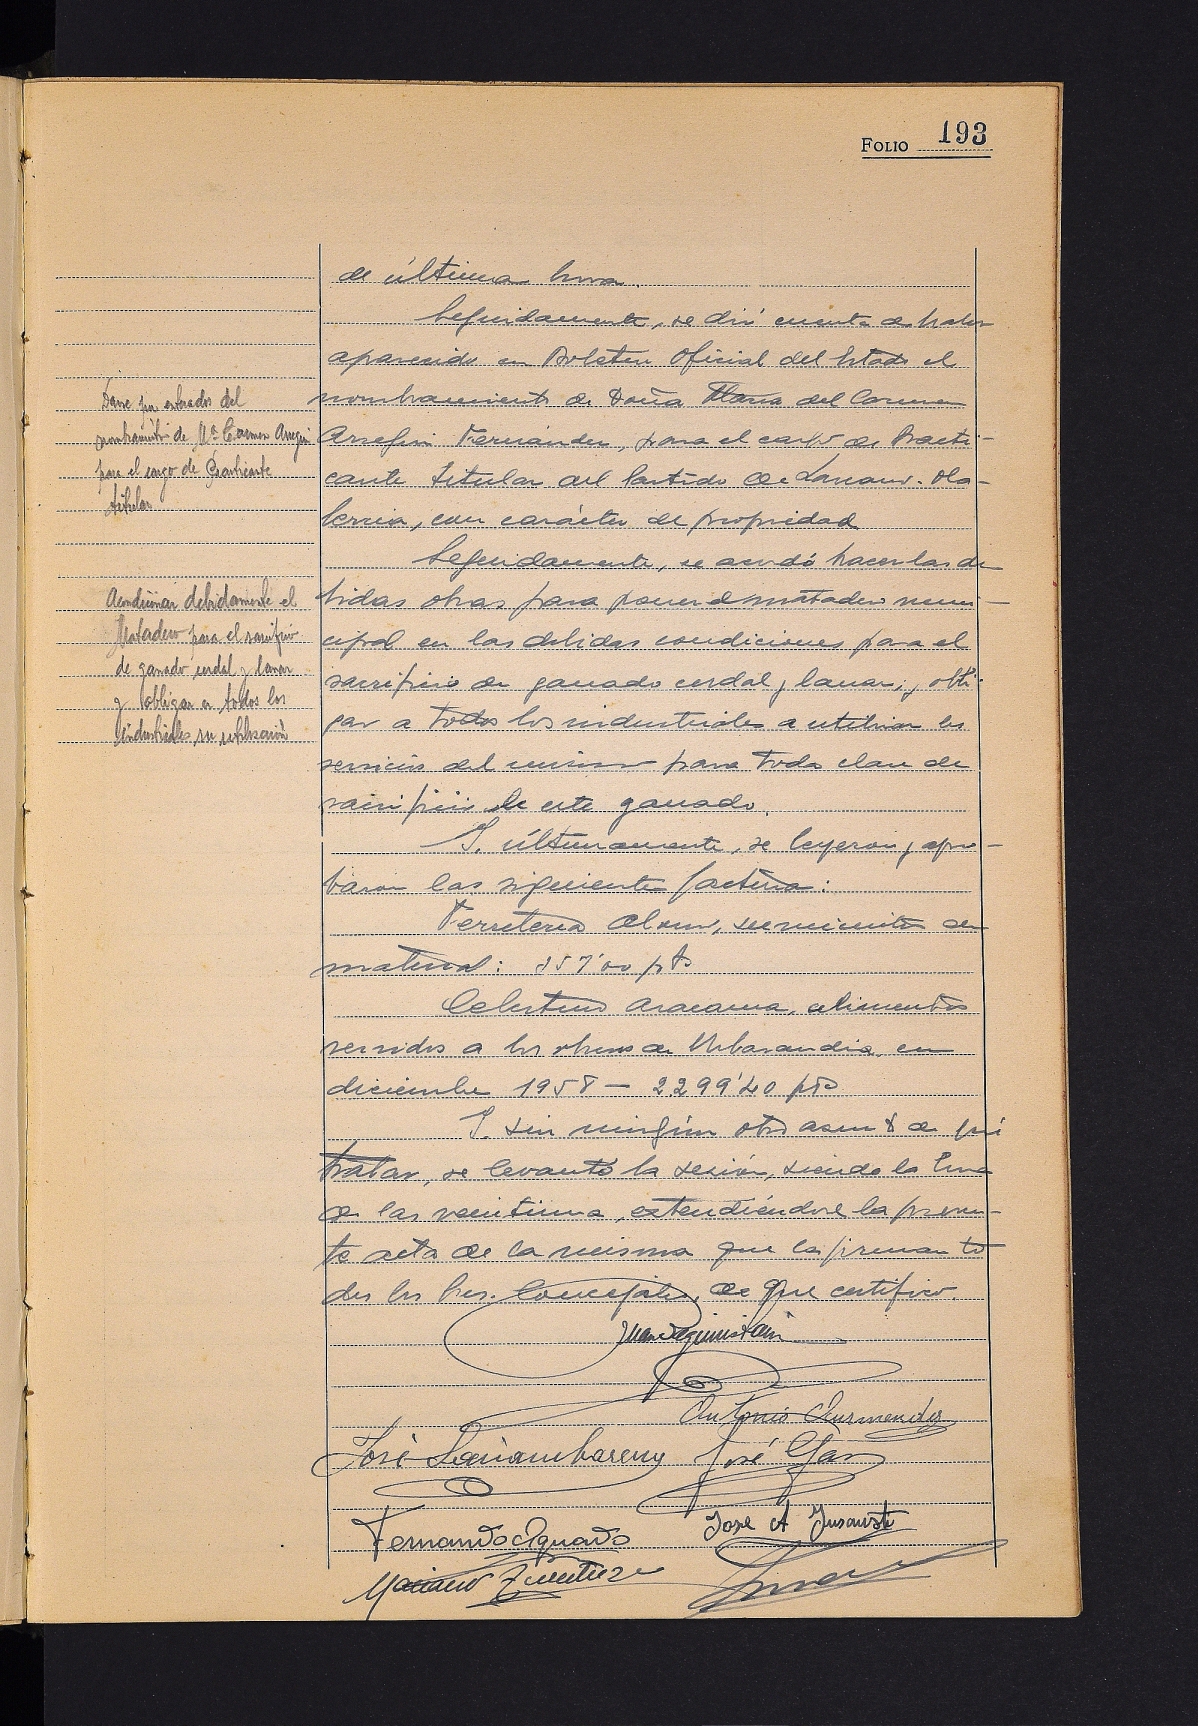 FOLIO 193
de última hora.
Seguidamente, se dió cuenta de haber
aparecido en Boletin Oficial del Estado el
nombramiento de Doña Maria del Carmen
Fernández, para el cargo de Practi-
cante titular del Partido de Lazcano-Ola-
berria, con carácter de propiedad
Seguidamente, se acordó hacer las de
bidas obras para poner el matadero muni-
cipal en las debidas condiciones para el
sacrificio de ganado cerdal y lanar, y obli-
gar a todos los industriales a utilizar los
servicios del mismo para toda clase de
sacrificio de este ganado.
Y, últimamente, se leyeron y apro-
baron las siguientes facturas:
Ferreteria suministro de
material: pts
Celestino Aracama, alimentos
servidos a los obreros de Urbasandia, en
diciembre 1958 — 2299'40 pts
Y sin ningún otro asunto de que
tratar, se levantó la sesión, siendo la hora
de las veintiuna, extendiéndose la presen-
te acta de la misma que la firman to
dos los Sres. Concejales, de que certifico.
Antonio Aurmendi
José José
Fernando Aguado José A Insausti
Mariano
Darse por enterados del
nombramiento de Mª Carmen
para el cargo de Practicante
titular
Acondicionar debidamente el
Matadero para el sacrificio
de ganado cerdal y lanar
y obligar a todos los
industriales su utilización